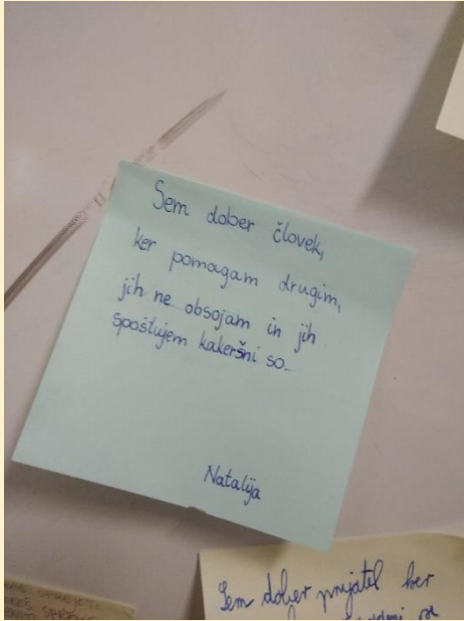 Sem dober človek,
ker pomagam drugim,
jih ne obsojam in jih
spoštujem kakeršni so.
Natalija
Sem dober prijatl ker